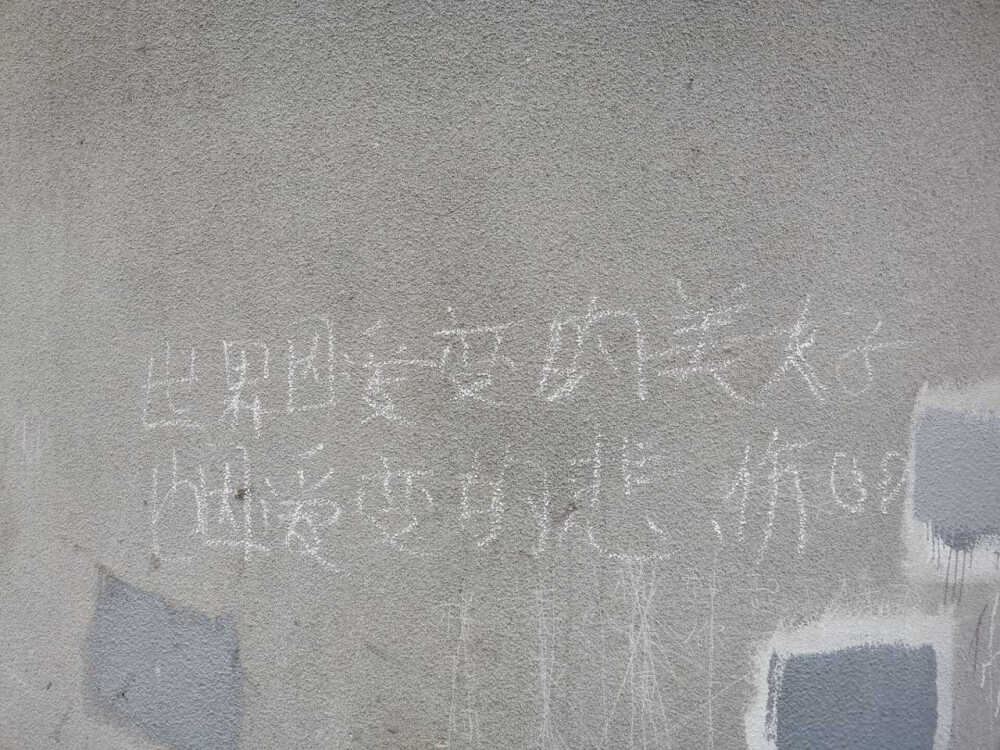 世界因爱变的美好
也因爱变的悲伤